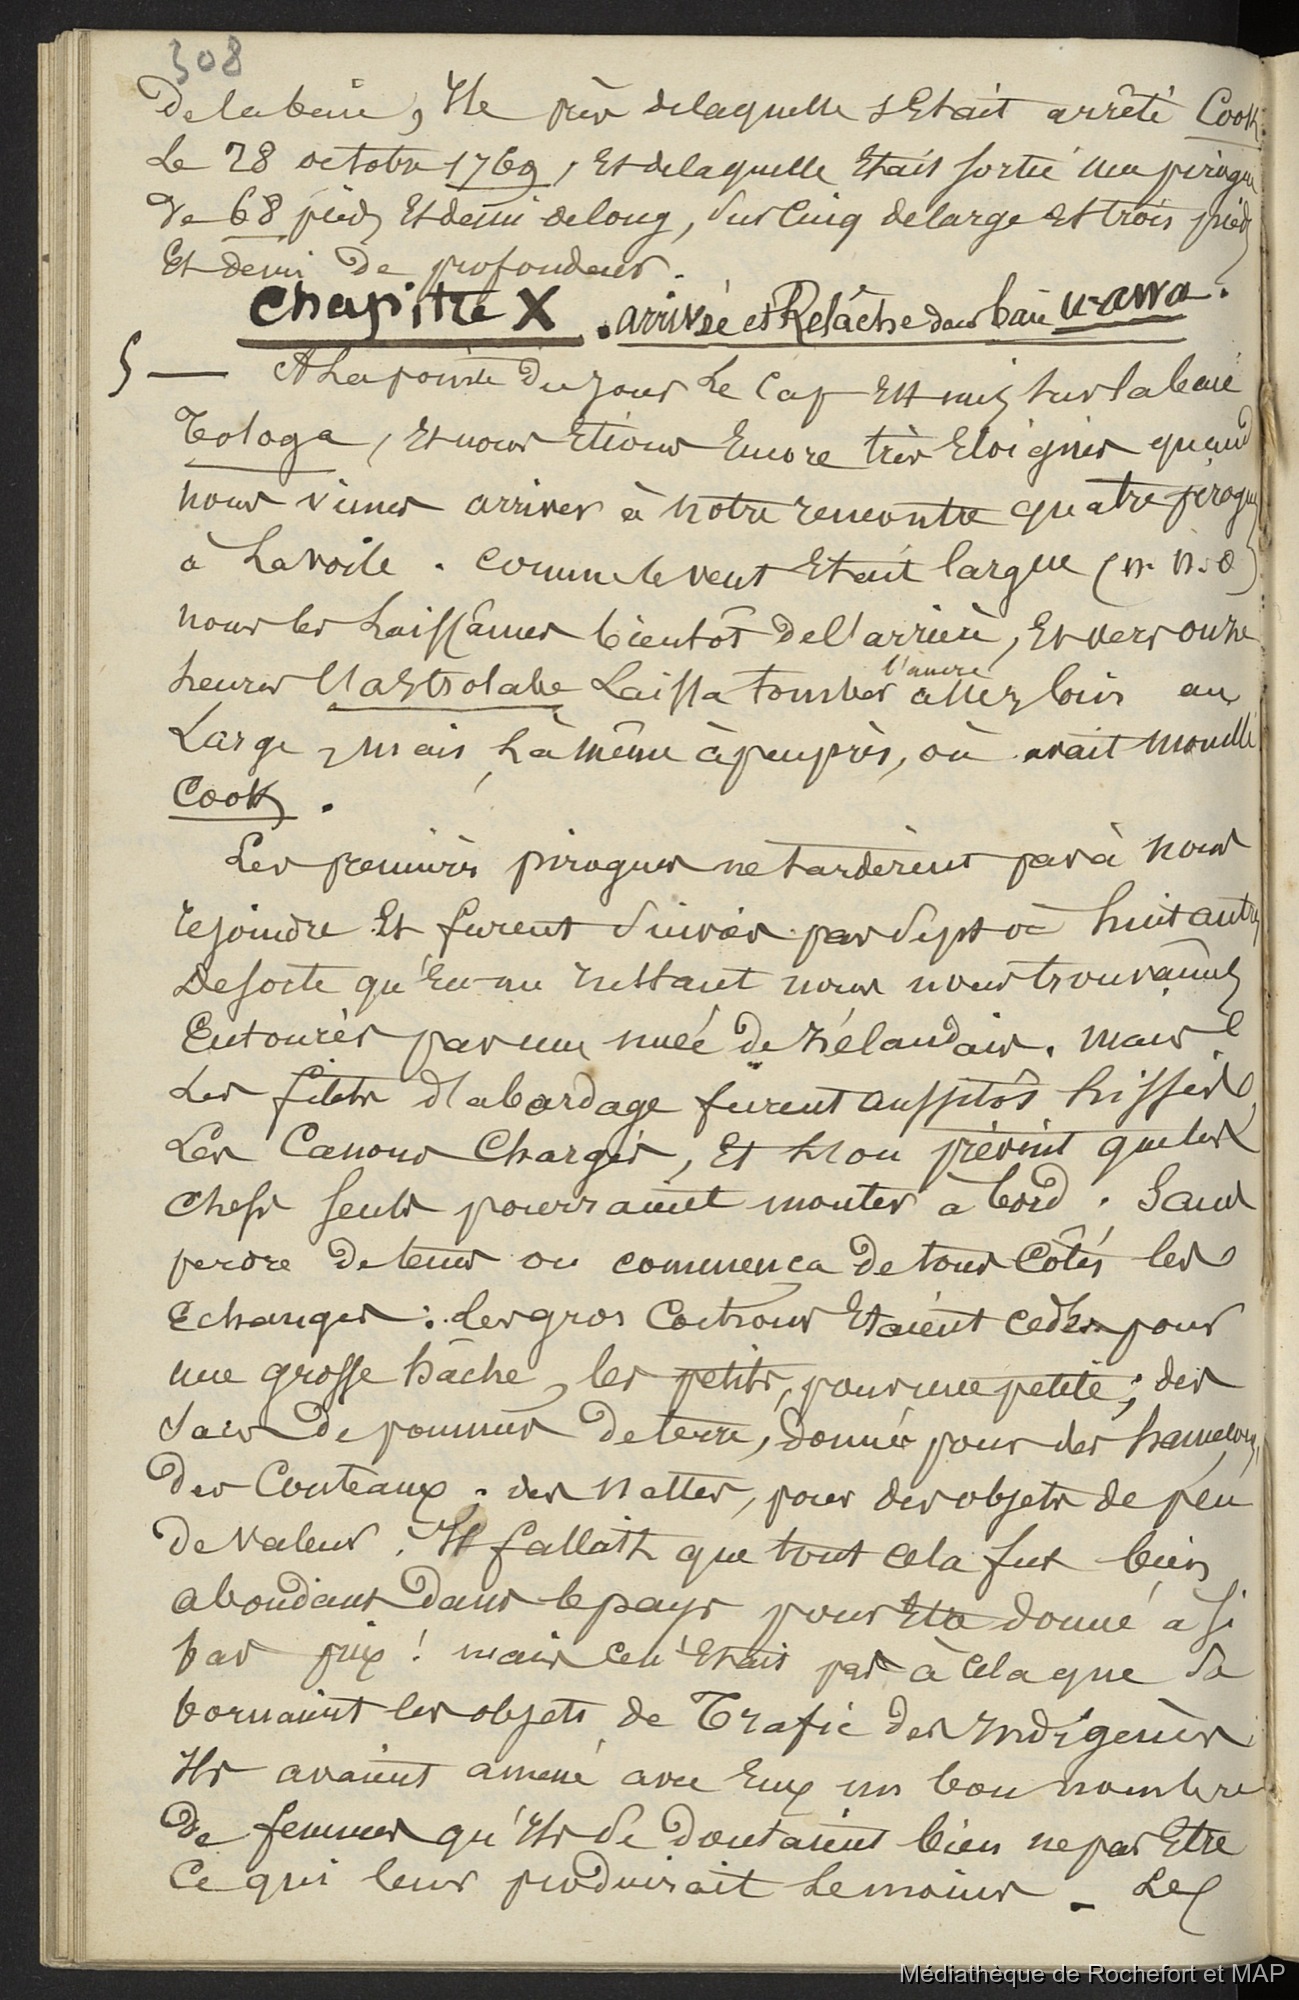 308
De la baie, Ile près de laquelle s'Etait arrêté Cook
Le 28 octobre 1769, Et de laquelle Etait sortie une pirogue
De 68 pieds Et demi de long, sur Cinq de large et trois pieds
Et demi De profondeur.
Chapitre X. arrivée et Relâche dans baie u-awa.
5 — A La pointe Du jour Le Cap Est mis sur la baie
Tologa, Et nous Etions Encore très Eloignés quand
nous vimes arriver à notre rencontre quatre pirogues
à La voile. Comme le vent Etait largue (n. n. o)
nous les Laissâmes bientôt De l'arrière, Et vers onze
heures l'astrolabe Laissa tomber l'ancre assez loin au
Large, mais là même à peu près, où avait mouillé
Cook.
Les premières pirogues ne tardèrent pas à nous
rejoindre Et furent suivies par sept où huit autres
De sorte qu'En un instant nous nous trouvâmes
Entourés par une nuée de zélandais. mais
Les filets d'abordage furent aussitôt hissés
Les Canons Chargés, Et l'on prévint que les
Chefs seuls pourraient monter à bord. Sans
perdre De tems on commença De tous Côtés les
Echanges : Les gros Cochons Etaient cédés pour
une grosse hâche, les petits, pour une petite; des
sacs De pommes De terre, donnés pour des hameçons,
Des Couteaux; des nattes, pour des objets de peu
De valeur. Il fallait que tout cela fut bien
abondant Dans le pays pour Etre donné à si
bas prix! mais ce n'Etait pas à cela que se
bornaient les objets de Trafic des indigènes
Ils avaient amené avec Eux un bon nombre
De femmes qu'ils se doutaient bien ne pas Etre
Ce qui leur produirait Le moins _ Les
Médiathèque de Rochefort et MAP